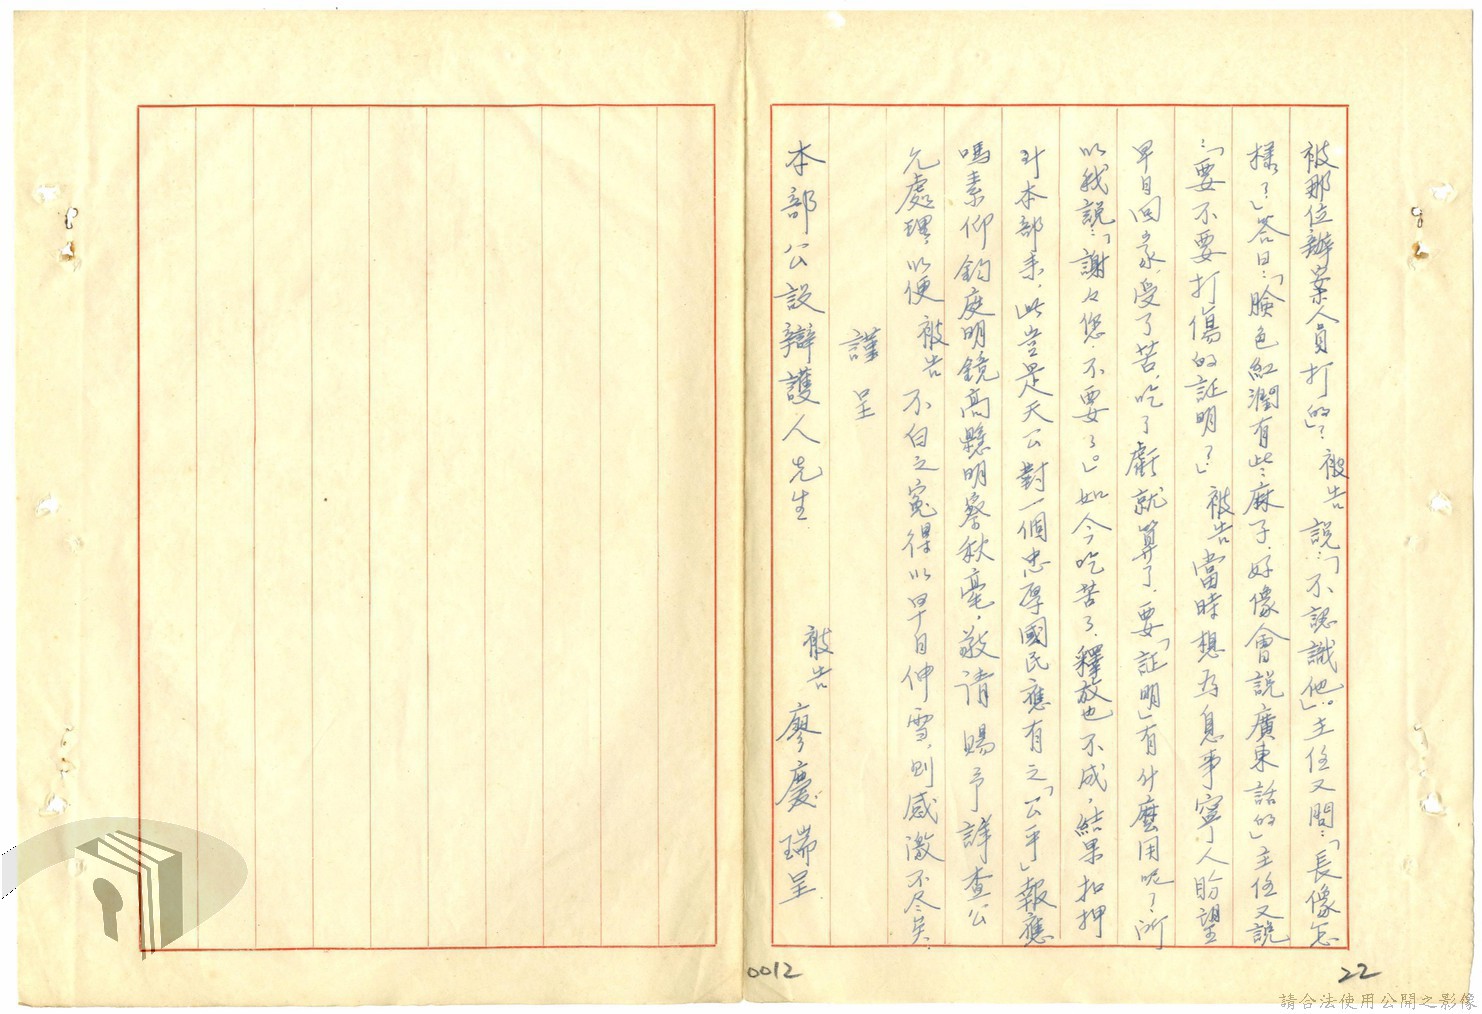 被那位辦案人員打的」？被告說：「不認識他」。主任又問：「長像怎
樣？」答曰：「臉色紅潤有些麻子，好像會說廣東話的」主任又說
：「要不要打傷的証明？」被告當時想為息事寧人盼望
早日回家，受了苦，吃了虧就算了，要「証明」有什麼用呢？所
以我說：「謝々您，不要了。」如今吃苦了，釋放也不成，結果扣押
到本部來，此豈是天公對一個忠厚國民應有之「公平」報應
嗎素仰鈞庭明鏡高懸明察秋毫，敬請賜予詳查公
允處理，以便被告不白之寃得以早日伸雪，則感激不尽矣
謹呈
本部公設辯護人先生
被告廖慶瑞呈
0012
22
請合法使用公開之影像